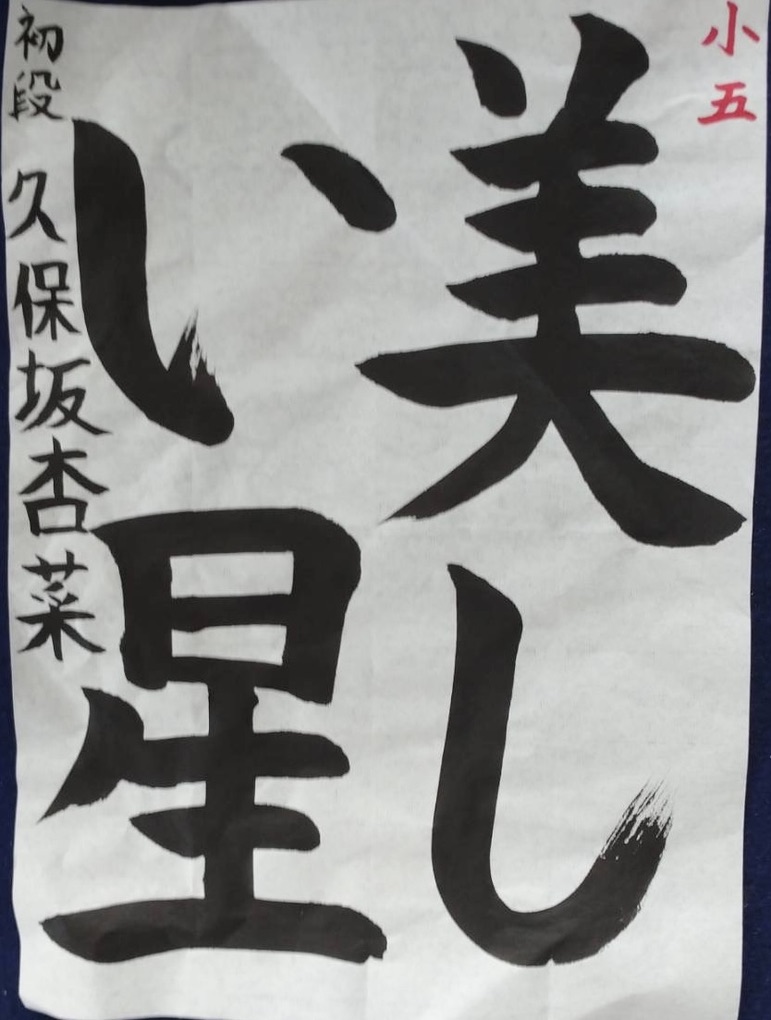 小五
美し
い星
初段 久保坂杏菜